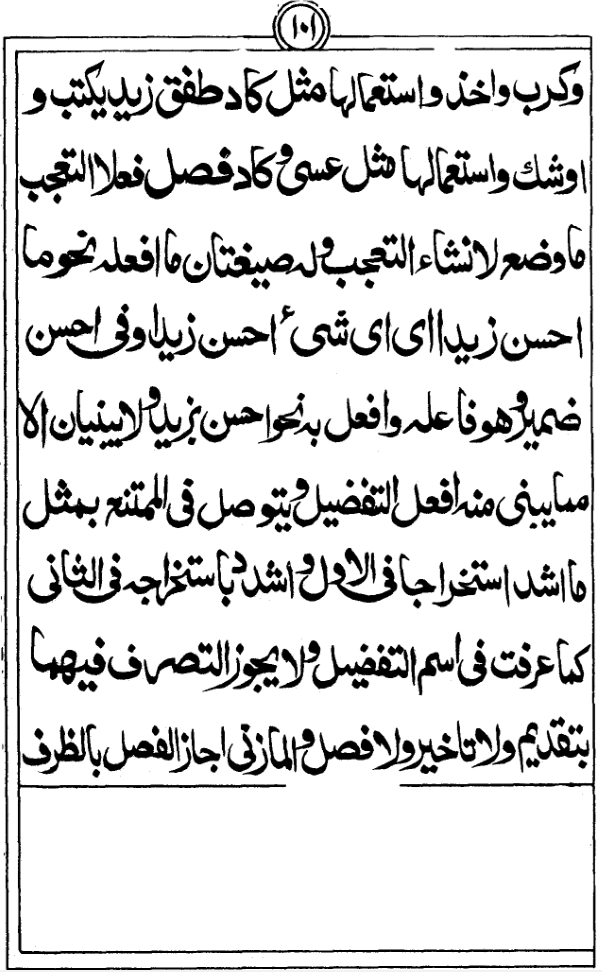 ١٠١
وكرب واخذ واستعمالها مثل كاد طفق زيد يكتب و
اوشك واستعمالها مثل عسى وكاد فصل فعلا التعجب
ما وضع لانشاء التعجب وله صيغتان ما افعله نحو ما
احسن زيدا اى اى شىء احسن زيدا وفى احسن
ضمير وهو فاعله وافعل به نحو احسن بزيد ولا يبنيان الا
مما يبنى منه افعل التفضيل ويتوصل فى الممتنع بمثل
ما اشد استخراجا فى الاول واشدد باستخراجه فى الثانى
كما عرفت فى اسم التفضيل ولا يجوز التصرف فيهما
بتقديم ولا تاخير ولا فصل والمازنى اجاز الفصل بالظرف